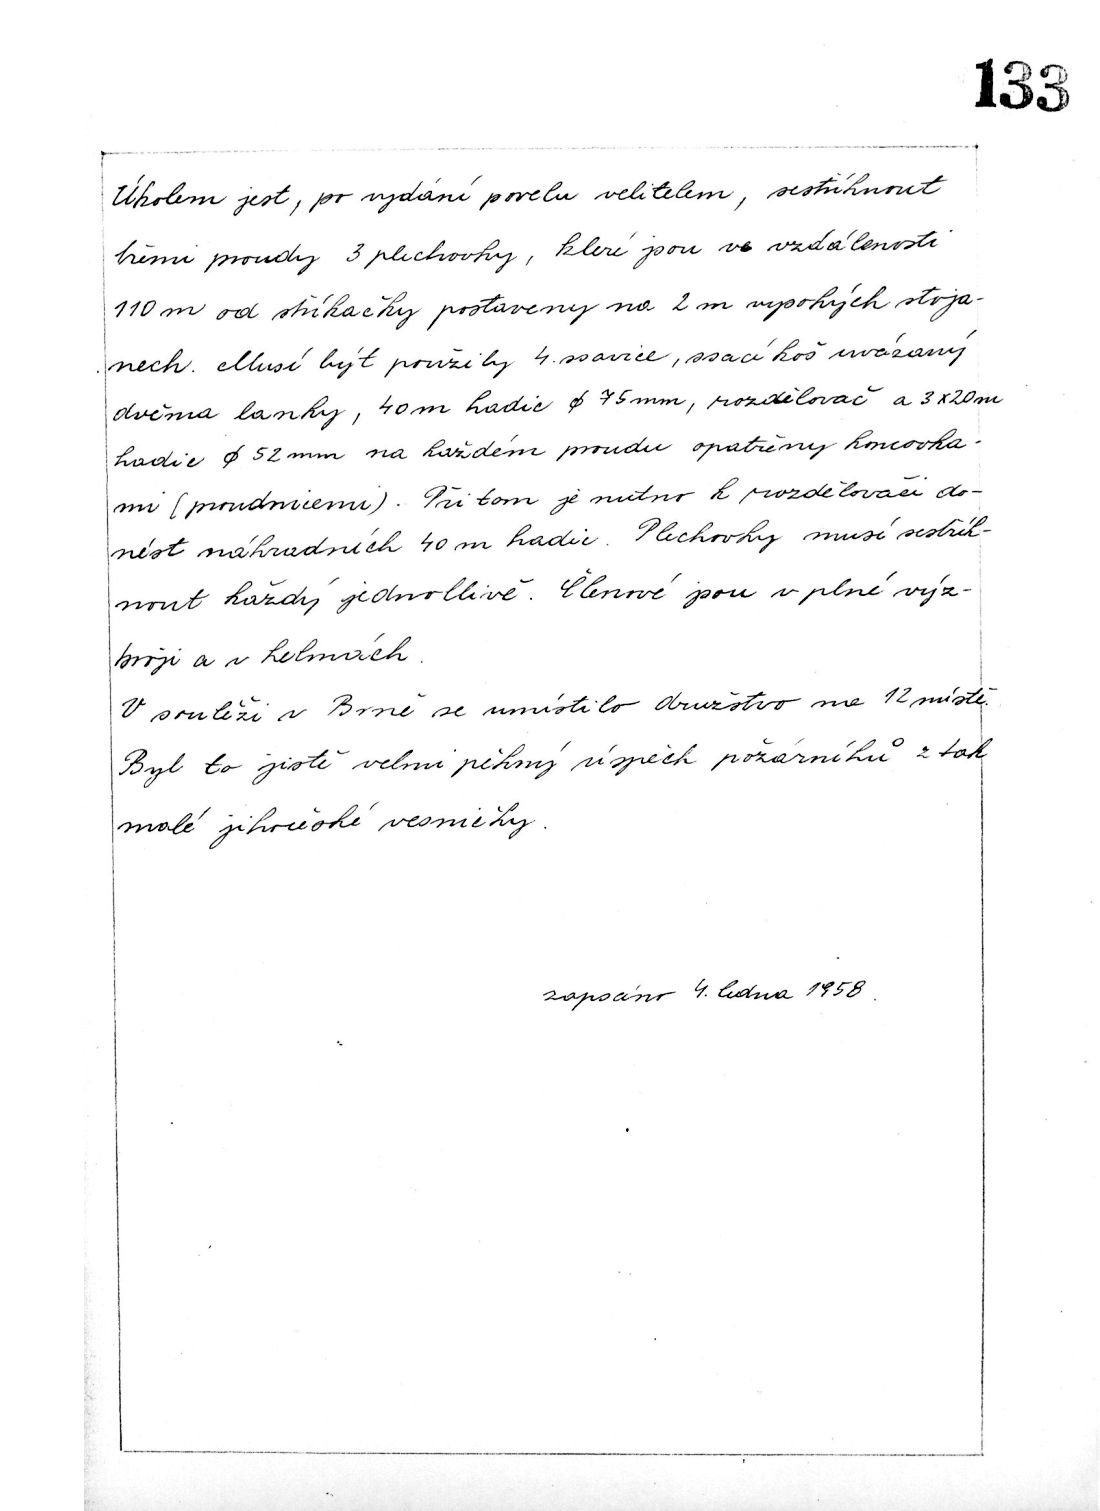 133
Úkolem jest, po vydání povelu velitelem, sestřiknout
třemi proudy 3 plechovky, které jsou ve vzdálenosti
110 m od stříkačky postaveny na 2 m vysokých stoja-
nech. Musí být použity 4. ssavice, ssací koš uvázaný
dvěma lanky, 40 m hadic ϕ 75 mm, rozdělovač a 3x20m
hadic ϕ 52 mm na každém proudu opatřeny koncovka-
mi (proudnicemi). Při tom je nutno k rozdělovači do-
nést náhradních 40 m hadic. Plechovky musí sestřík-
nout každý jednotlivě. Členové jsou v plné výz-
broji a v helmách.
V soutěži v Brně se umístilo družstvo na 12 místě.
Byl to jistě velmi pěkný úspěch požárníků z tak
malé jihočeské vesničky.
zapsáno 4. ledna 1958.